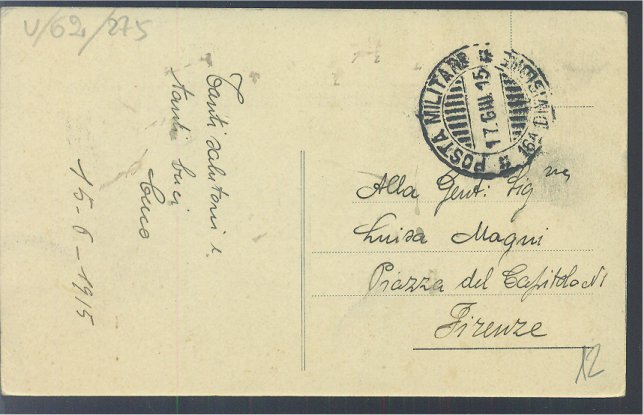 V/62/275
Tanti saluti e
tanti baci
15-6-1915
POSTA MILITARE
16A DIVISIONE
17.GIU.15
Alla Gent: Sig.na
Luisa Magni
Piazza del Capitolo N1
Firenze
12